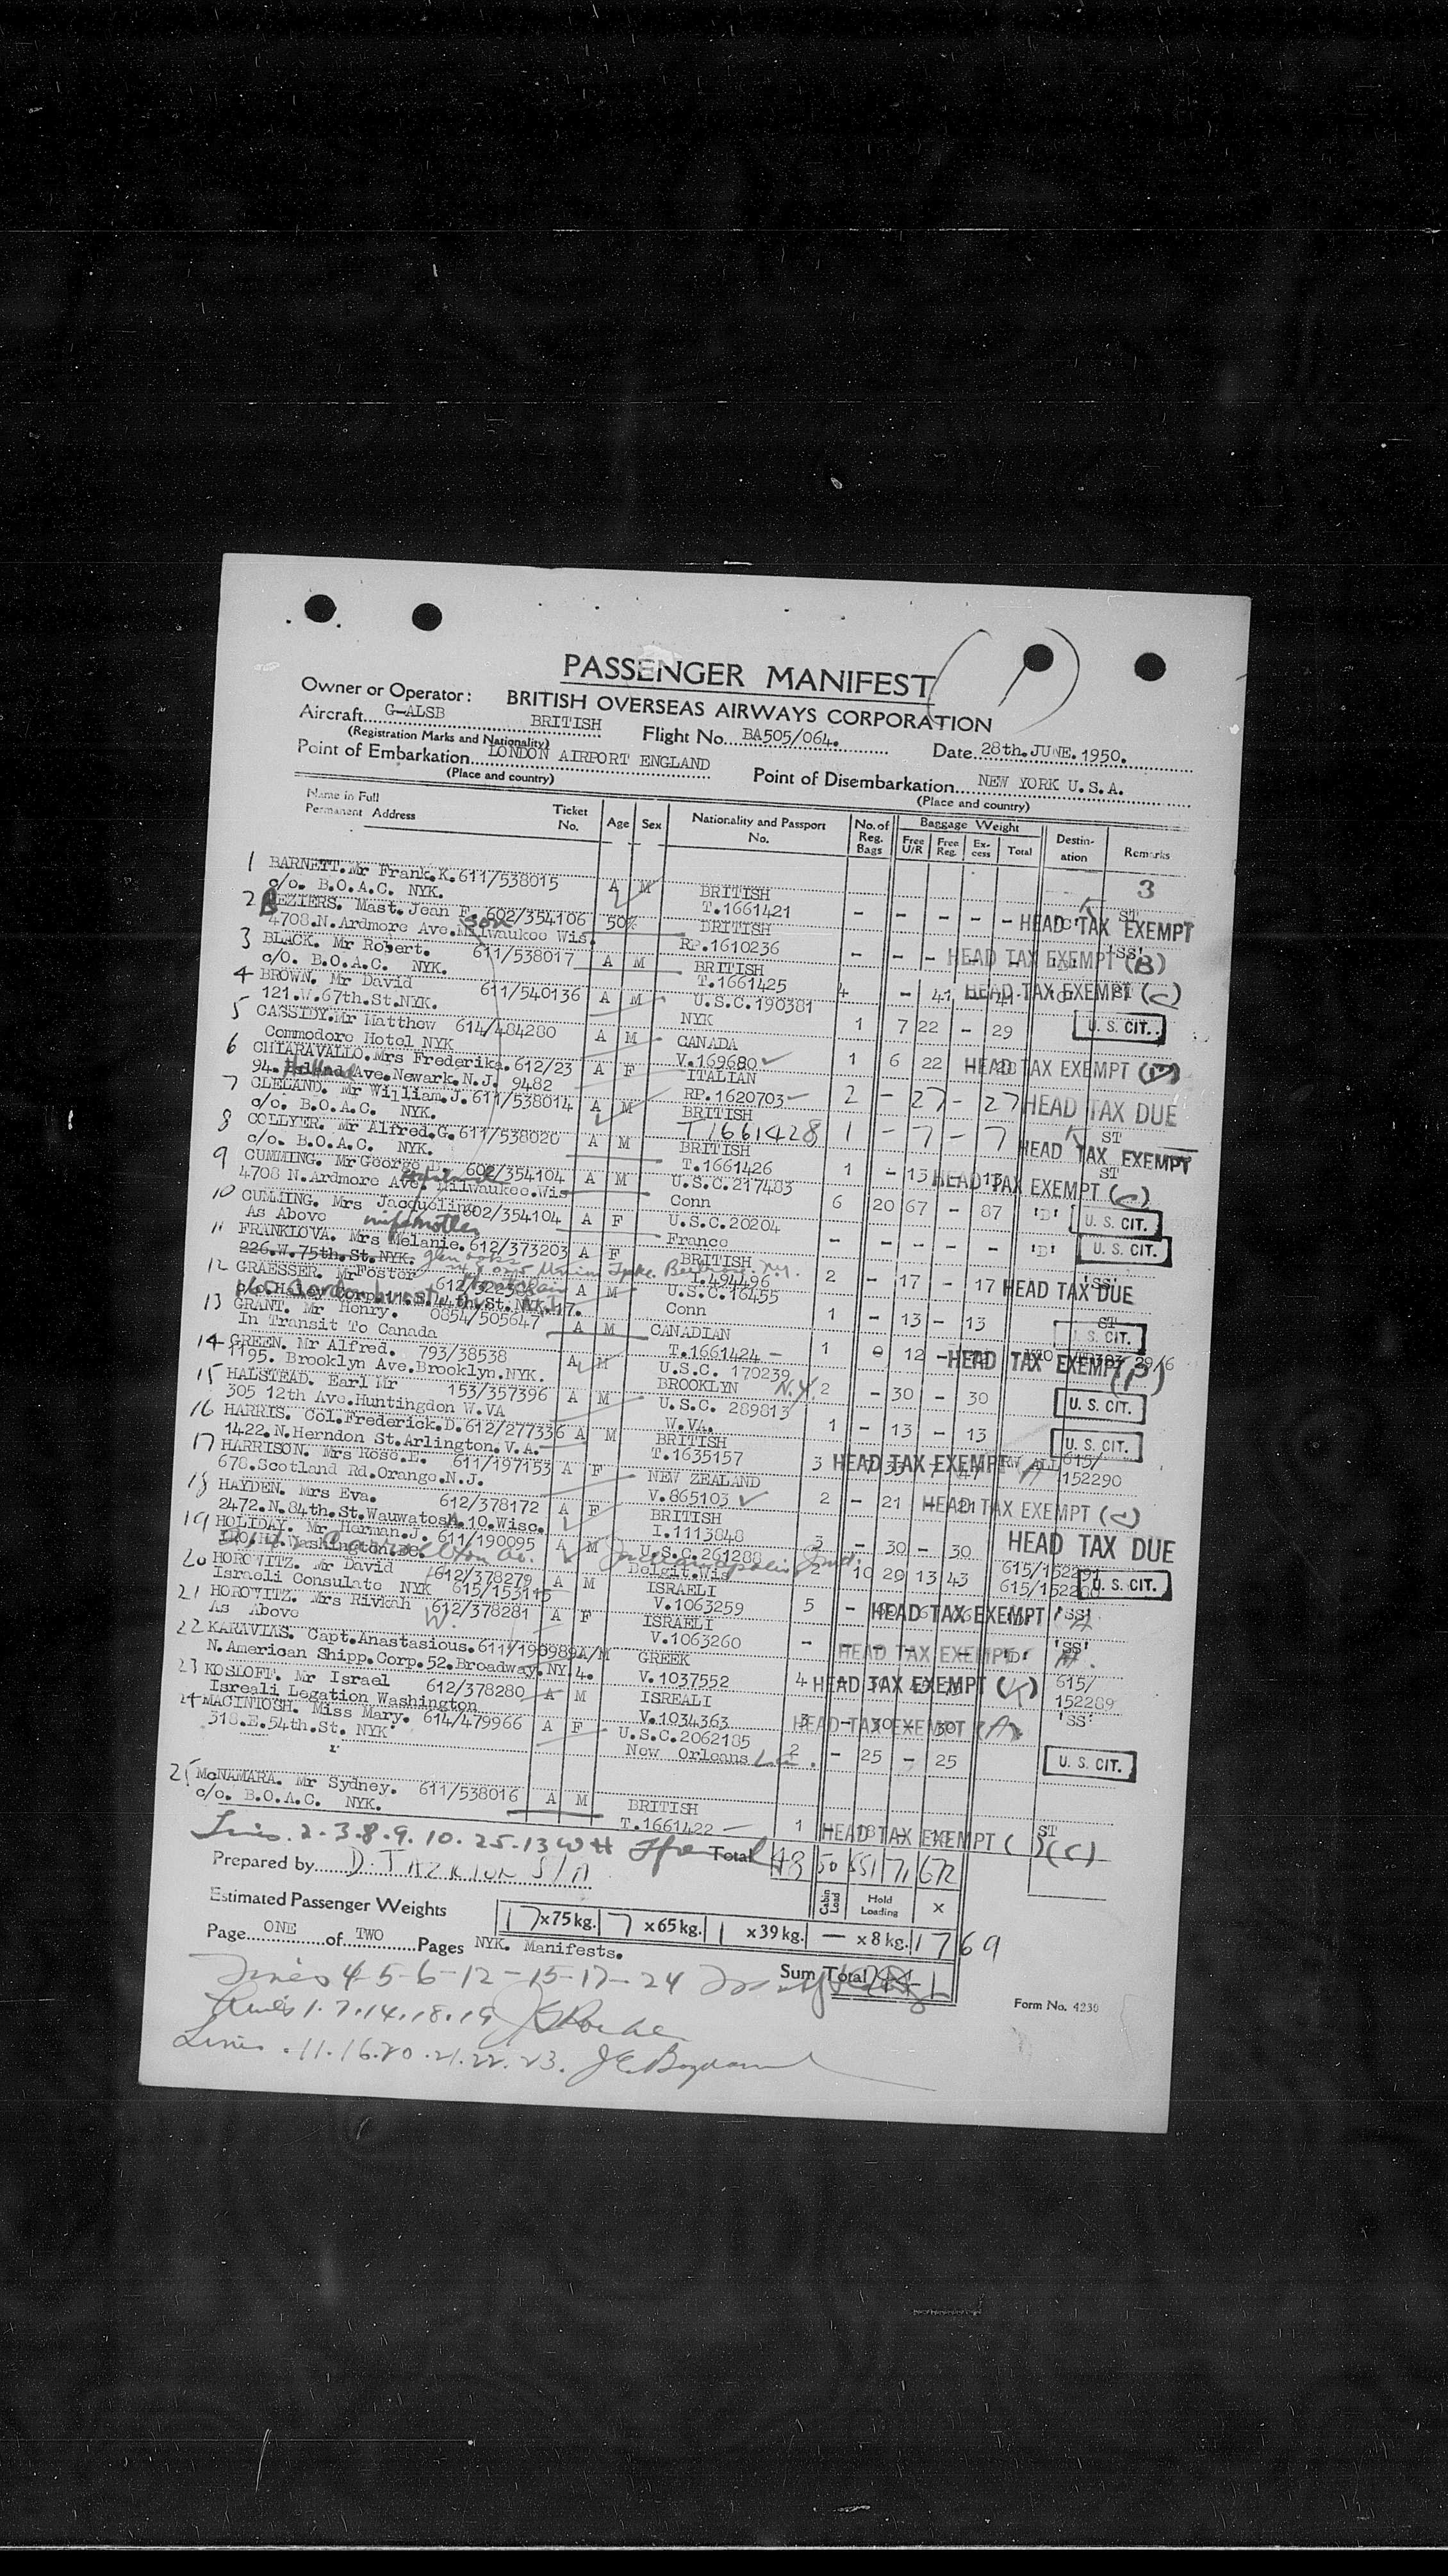 PASSENGER MANIFEST
Owner or Operator: BRITISH OVERSEAS AIRWAYS CORPORATION
Aircraft G-ALSB BRITISH Flight No. BA505/064. Date 28th.JUNE.1950.
(Registration Marks and Nationality)
Point of Embarkation LONDON AIRPORT ENGLAND Point of Disembarkation NEW YORK U.S.A.
(Place and country) (Place and country)
Name in Full Permanent Address Ticket No. Age Sex Nationality and Passport No. No. of Reg. Bags Baggage Weight Free U/R Free Reg. Ex-cess Total Destin-ation Remarks
3
1 BARNETT.Mr Frank.K.611/538015 A M BRITISH
c/o. B.O.A.C. NYK. T.1661421 - - - - - HEAD TAX EXEMPT ST
2 BEZIERS. Mast.Jean F. 602/354106 50% BRITISH
4708.N.Ardmore Ave.Milwaukee Wis. son RP.1610236 - - - HEAD TAX EXEMPT (B) 'SS'
3 BLACK. Mr Robert. 611/538017 A M BRITISH
c/o. B.O.A.C. NYK. T.1661425 4 - 41 HEAD TAX EXEMPT (C)
4 BROWN. Mr David 611/540136 A M U.S.C.190381
121.W.67th.St.NYK. NYK 1 7 22 - 29 U. S. CIT.
5 CASSIDY.Mr Matthew 614/484280 A M CANADA
Commodore Hotel NYK V.169680 1 6 22 HEAD TAX EXEMPT
6 CHIARAVALLO.Mrs Frederika.612/23 A F ITALIAN
94. Ave.Newark.N.J. 9482 RP.1620703 2 - 27 - 27 HEAD TAX DUE
7 CLELAND. Mr William.J.611/538014 A M BRITISH
c/o. B.O.A.C. NYK. T1661428 1 - 7 - 7 HEAD TAX EXEMPT ST
8 COLLYER. Mr Alfred.G.611/538020 A M BRITISH
c/o. B.O.A.C. NYK. T.1661426 1 - 13 HEAD TAX EXEMPT (C) ST
9 CUMMING. Mr George 602/354104 A M U.S.C.217483
4708 N.Ardmore Ave. Milwaukee.Wis Conn 6 20 67 - 87 'D' U. S. CIT.
10 CUMMING. Mrs Jacqueline 602/354104 A F U.S.C.20204
As Above France - - - - - 'D' U. S. CIT.
11 FRANKLOVA. Mrs Melanie.612/373203 A F BRITISH
226.W.75th.St.NYK. I.494496 2 - 17 - 17 HEAD TAX DUE 'SS'
12 GRAESSER. Mr Foster A M U.S.C.16455
Conn 1 - 13 - 13 ST U. S. CIT.
13 GRANT. Mr Henry. 0854/505647 A M CANADIAN
In Transit To Canada T.1661424 1 12 HEAD TAX EXEMPT
14 GREEN. Mr Alfred. 793/38538 A M U.S.C. 170239
1195. Brooklyn Ave.Brooklyn.NYK. BROOKLYN N.Y. 2 - 30 - 30 U. S. CIT.
15 HALSTEAD. Earl Mr 153/357396 A M U.S.C. 289813
305 12th Ave.Huntingdon W.VA W.VA. 1 - 13 - 13 U. S. CIT.
16 HARRIS. Col.Frederick.D.612/277336 A M BRITISH
1422.N.Herndon St.Arlington.V.A. T.1635157 3 HEAD TAX EXEMPT 615/152290
17 HARRISON. Mrs Rose.E. 611/197153 A F NEW ZEALAND
678.Scotland Rd.Orange.N.J. V.865103 2 - 21 - 21 HEAD TAX EXEMPT
18 HAYDEN. Mrs Eva. 612/378172 A F BRITISH
2472.N.84th.St.Wauwatosa.10.Wisc. I.1113848 3 - 30 - 30 HEAD TAX DUE
19 HOLIDAY. Mr Herman.J. 611/190095 A M U.S.C.261288
2 10 29 13 43 615/152291 U. S. CIT.
20 HOROWITZ. Mr David 612/378279 A M ISRAELI
Israeli Consulate NYK 615/153115 V.1063259 5 - HEAD TAX EXEMPT 'SS'
21 HOROWITZ. Mrs Rivkah 612/378281 A F ISRAELI
As Above V.1063260 - HEAD TAX EXEMPT 'D' 'SS'
22 KARAVIAS. Capt.Anastasious.611/190989 A/M GREEK
N.American Shipp.Corp.52.Broadway.NY.4. V.1037552 4 HEAD TAX EXEMPT 615/152289
23 KOSLOFF. Mr Israel 612/378280 A M ISREALI
Isreali Legation Washington V.1034363 3 - 30 - 30 HEAD TAX EXEMPT 'SS'
24 MACINTOSH. Miss Mary. 614/479966 A F U.S.C.2062185
318.E.54th.St. NYK New Orleans La. 2 - 25 - 25 U. S. CIT.
25 McNAMARA. Mr Sydney. 611/538016 A M BRITISH
c/o. B.O.A.C. NYK. T.1661422 1 HEAD TAX EXEMPT ( )(C) ST
Lines. 2.3.8.9.10.25.13 Total 43 50 551 71 672
Prepared by Cabin Load Hold Loading X
Estimated Passenger Weights 17 x 75 kg. 7 x 65 kg. 1 x 39 kg. — x 8 kg. 1769
Page ONE of TWO Pages NYK. Manifests. Sum Total
Lines 4-5-6-12-15-17-24
Lines 1.7.14.18.19
Lines .11.16.20.21.22.23.
Form No. 4230